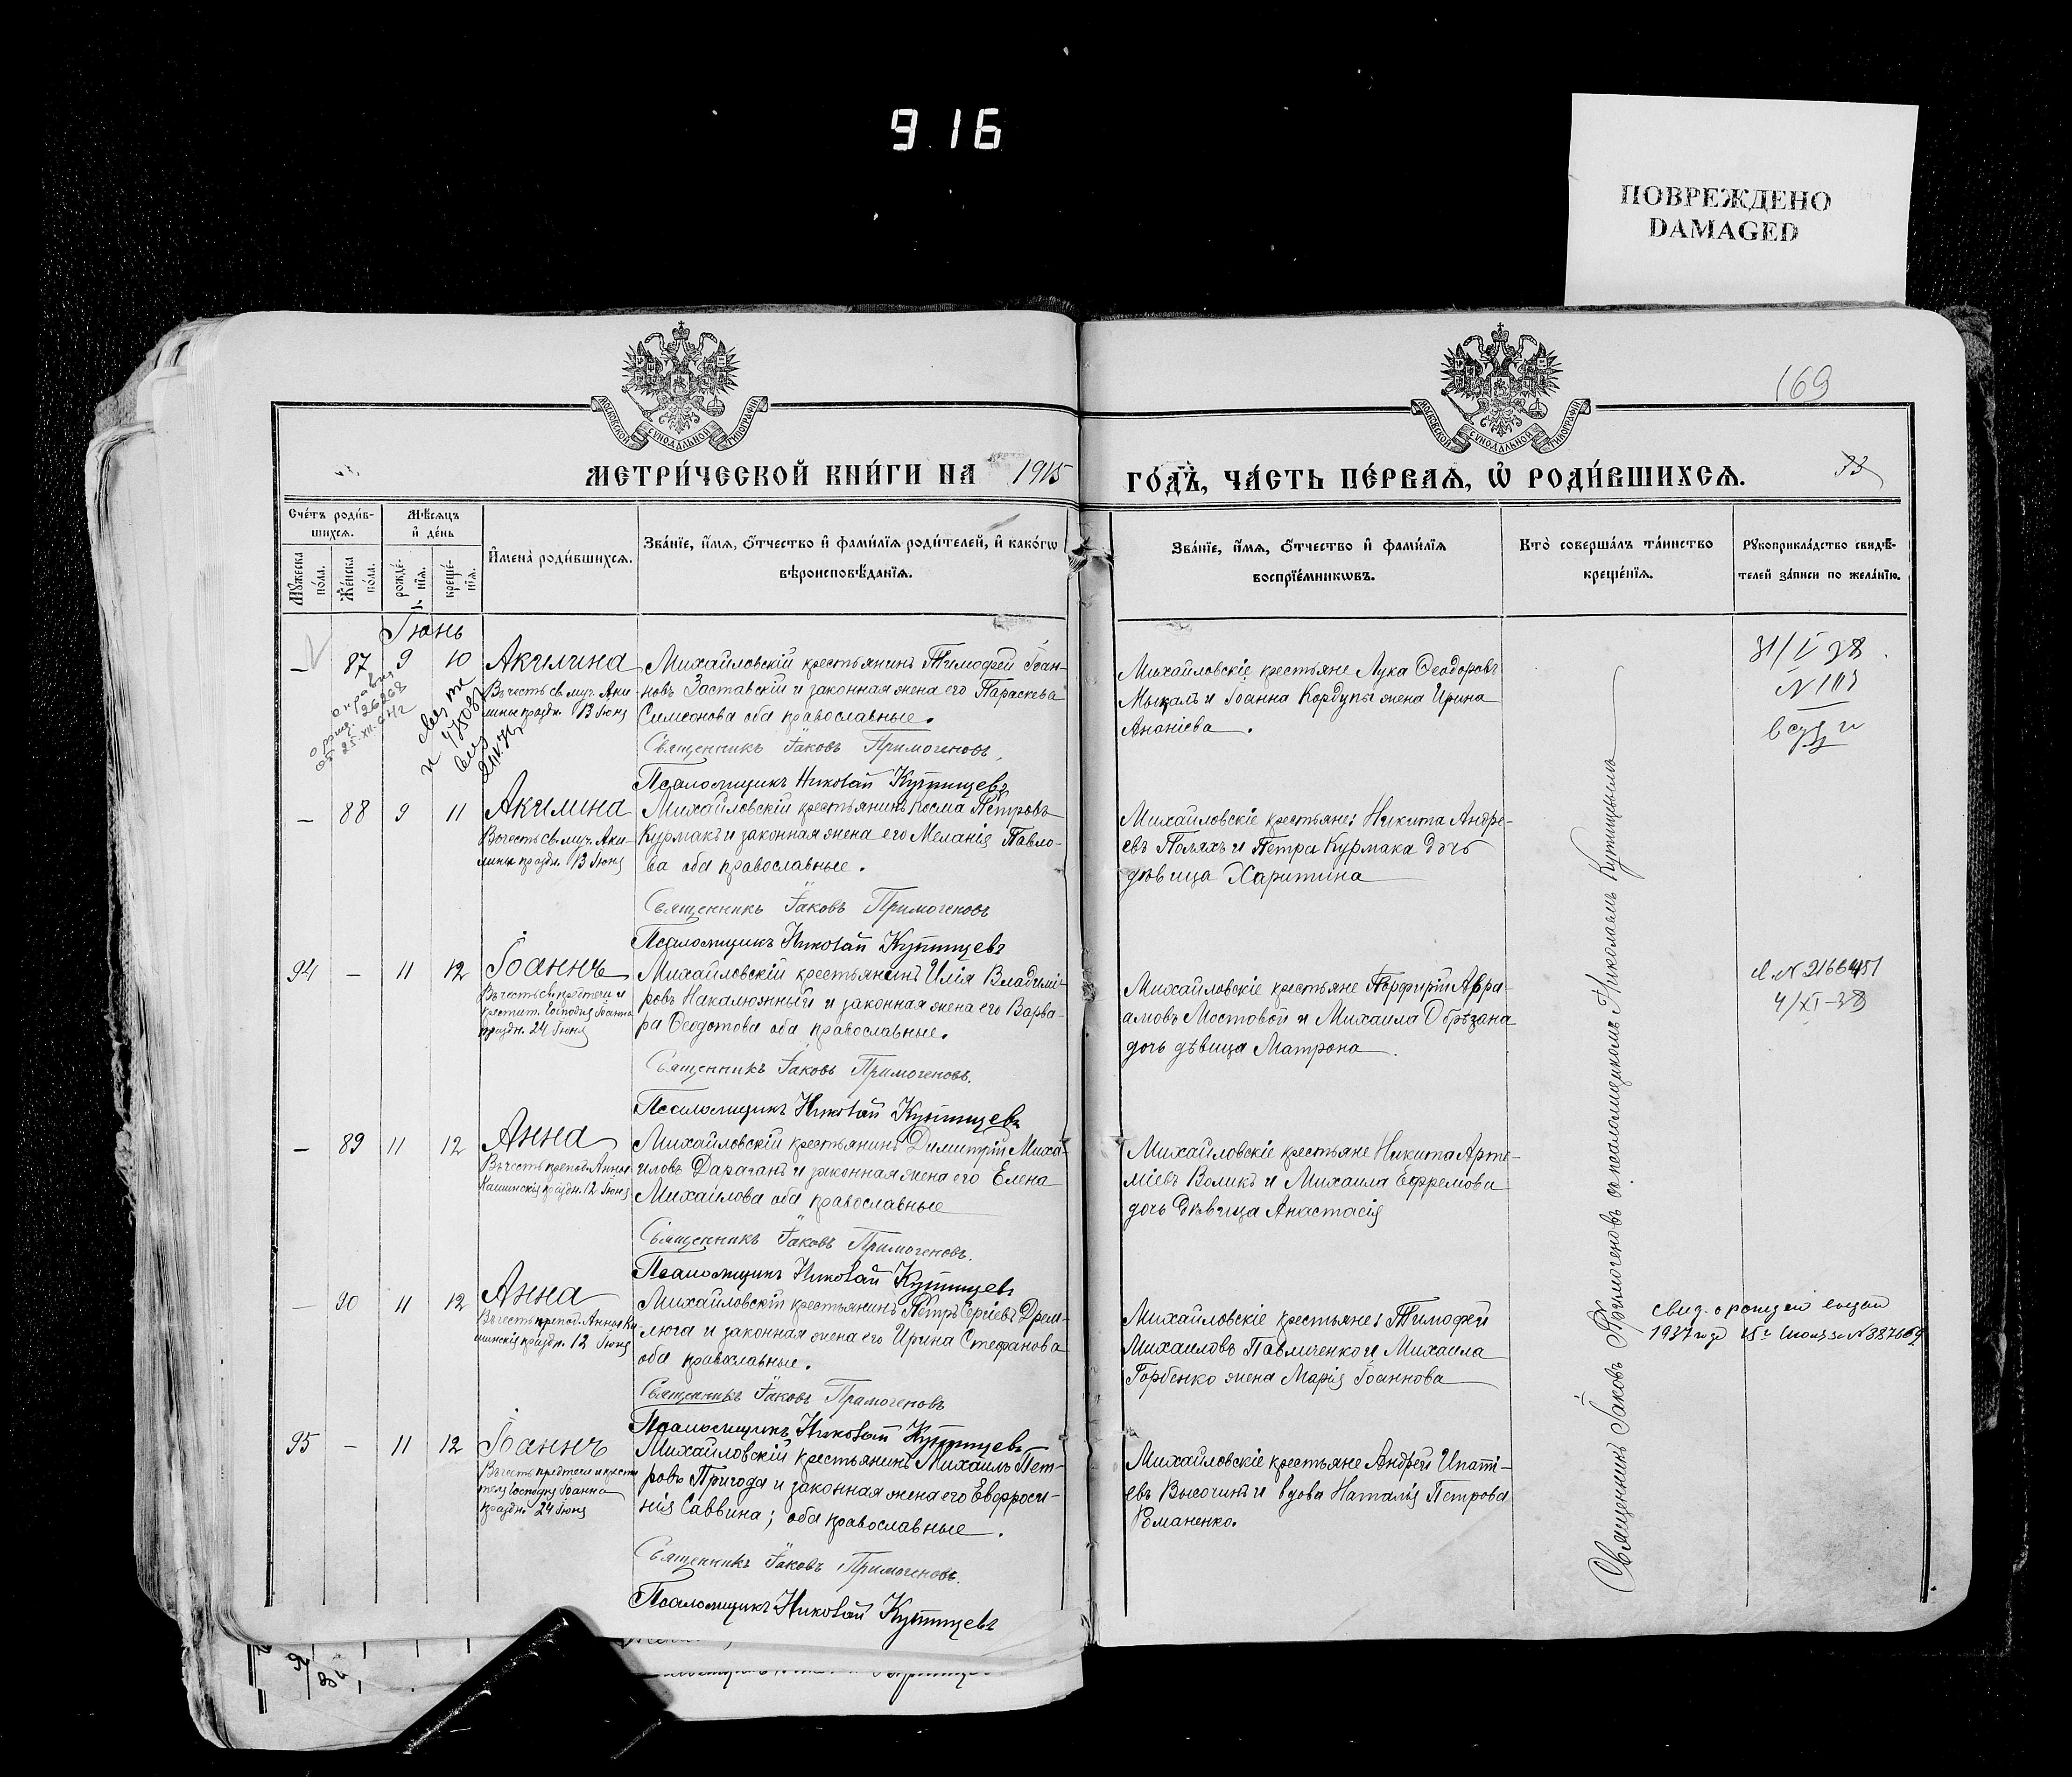 9 16
ПОВРЕЖДЕНО
DAMAGED
МОСКОВСКОЙ СУНОДАЛЬНОЙ ТИПОГРАФІИ
МОСКОВСКОЙ СУНОДАЛЬНОЙ ТИПОГРАФІИ
169
МЕТРИ́ЧЕСКОЙ КНИ́ГИ НА 1915
ГО́ДЪ, ЧА́СТЬ ПЕ́РВАѦ, Ѿ РОДИ́ВШИХСѦ.
33
Сче́тъ роди́в-
шихсѧ.
Мꙋ́жеска по́ла.
Же́нска по́ла.
Мѣ́сѧцъ
и҆ де́нь
рожде́нїѧ.
креще́нїѧ.
И҆мена̀ роди́вшихсѧ.
Зва́нїе, и҆́мѧ, ѻ҆́тчество и҆ фами́лїѧ роди́телей, и҆ како́гѡ
вѣроисповѣ́данїѧ.
Зва́нїе, и҆́мѧ, ѻ҆́тчество и҆ фами́лїѧ
воспрїе́мникѡвъ.
Кто̀ соверша́лъ та́инство
креще́нїѧ.
Рꙋкоприкла́дство свидѣ́-
телей за́писи по жела́нїю.
Іюнь
— 87 9 10 Акилина
Въ честь св. муч. Аки-
лины праздн. 13 Іюня
Михайловскій крестьянинъ Тимофей Іоан-
новъ Заставскій и законная жена его Параскева
Симеонова оба православные.
Священникъ Іаковъ Примогеновъ
Псаломщикъ Николай Купницевъ
Михайловскіе крестьяне Лука Ѳеодоровъ
Мыкалъ и Іоанна Кордупы жена Ирина
Ананіева.
31/V 38
N 113
25.XII.
— 88 9 11 Акилина
Въ честь Св. муч. Аки-
лины праздн. 13 Іюня
Михайловскій крестьянинъ Косма Петровъ
Курмакъ и законная жена его Меланія Павло-
ва оба православные.
Священникъ Іаковъ Примогеновъ
Псаломщикъ Николай Купницевъ
Михайловскіе крестьяне: Никита Андре-
евъ Поляхъ и Петра Курмака дочь
дѣвица Харитина
94 — 11 12 Іоаннъ
Въ честь св. предтечи и
крестит. Господня Іоанна
праздн. 24 Іюня
Михайловскій крестьянинъ Илія Владимі-
ровъ Накалюжный и законная жена его Варва-
ра Ѳеодотова оба православные.
Священникъ Іаковъ Примогеновъ.
Псаломщикъ Николай Купницевъ
Михайловскіе крестьяне Порфирій Авра-
амовъ Мостовой и Михаила Обрѣзана
дочь дѣвица Матрона.
4/XI-38
— 89 11 12 Анна
Въ честь препод. Анны
Кашинскія праздн. 12 Іюня
Михайловскій крестьянинъ Димитрій Миха-
иловъ Дараганъ и законная жена его Елена
Михаилова оба православные
Священникъ Іаковъ Примогеновъ.
Псаломщикъ Николай Купницевъ
Михайловскіе крестьяне Никита Арте-
міевъ Воликъ и Михаила Ефремова
дочь дѣвица Анастасія
— 90 11 12 Анна
Въ честь препод. Анны Ка-
шинскія праздн. 12 Іюня
Михайловскій крестьянинъ Петръ Сергіевъ Дрем-
люга и законная жена его Ирина Стефанова
оба православные.
Священникъ Іаковъ Примогеновъ
Псаломщикъ Николай Купницевъ
Михайловскіе крестьяне: Тимофей
Михаиловъ Павличенко и Михаила
Горбенко жена Марія Іоаннова
95 — 11 12 Іоаннъ
Въ честь предтечи и крести-
теля Господня Іоанна
праздн. 24 Іюня
Михайловскій крестьянинъ Михаилъ Пет-
ровъ Пригода и законная жена его Евфроси-
нія Саввина; оба православные.
Священникъ Іаковъ Примогеновъ.
Псаломщикъ Николай Купницевъ
Михайловскіе крестьяне Андрей Ипаті-
евъ Высочинъ и вдова Наталія Петрова
Романенко.
Священникъ Іаковъ Примогеновъ съ псаломщикомъ Николаемъ Купницевымъ